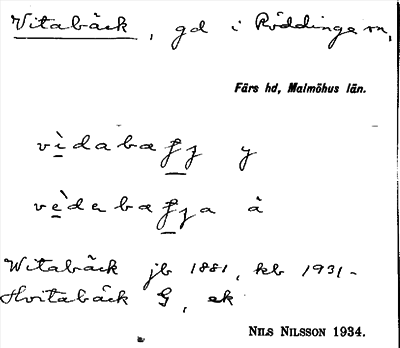 Vitabäck, gd i Röddinge sn,
Färs hd, Malmöhus län.
vìdabæ y
vèdebæ a å
Witabäck jb 1881, kb 1931-
Hvitabäck G, ek
NILS NILSSON 1934.